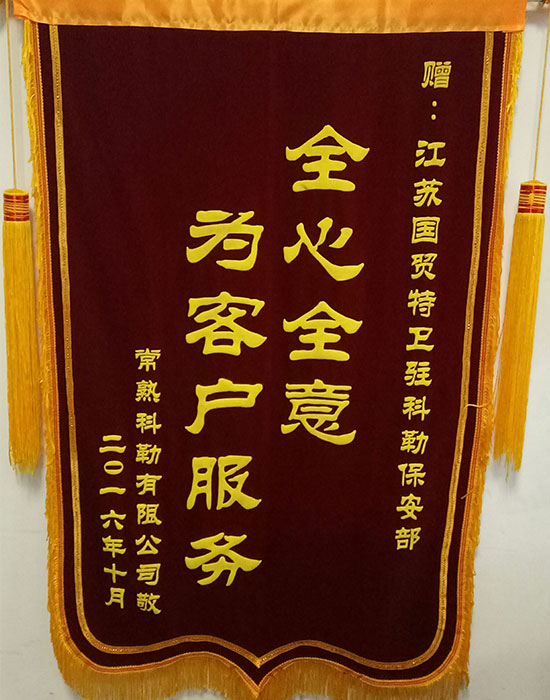 赠：江苏国贸特卫驻科勒保安部
全心全意
为客户服务
常熟科勒有限公司敬
二〇一六年十月